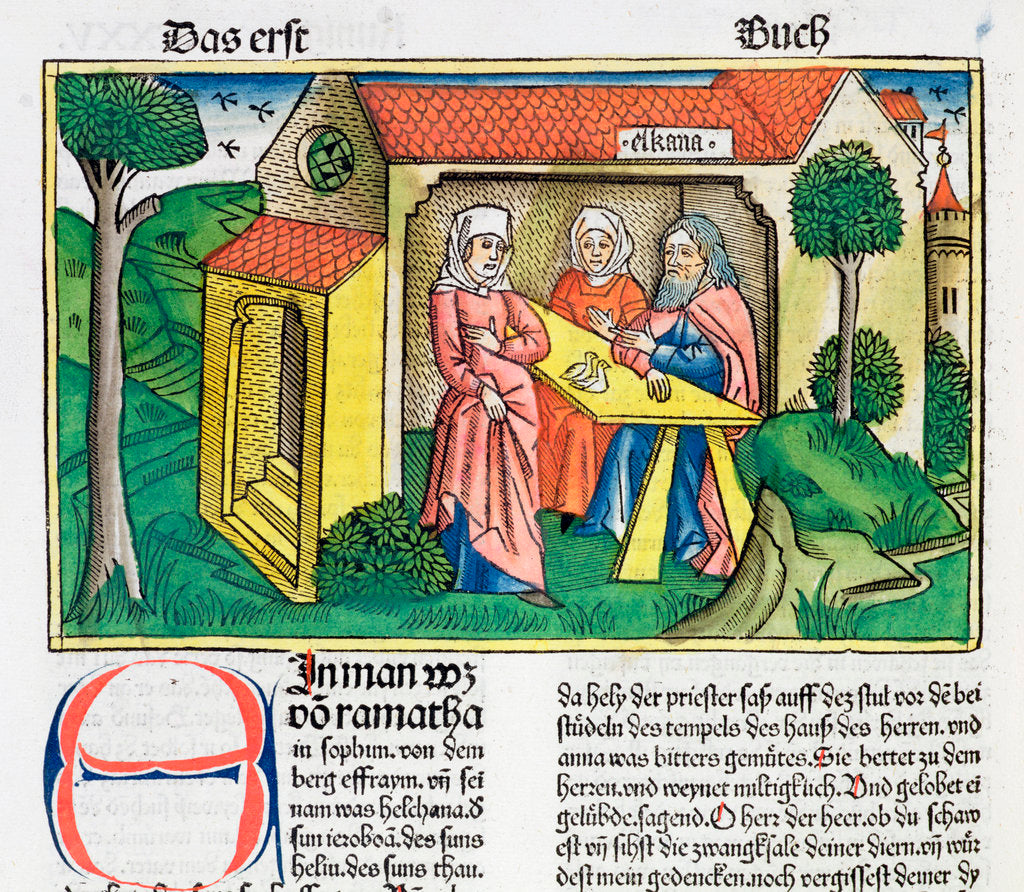 Das erst
Buch
·elkana·
EIn man wz
vō ramatha
in sophim. von dem
berg effraym. vn̄ sei
nam was helchana. d̕
sun ieroboā. des suns
heliu. des suns thau.
da hely der priester saß auff dez stul vor dē bei
stüdeln des tempels des hauß des herren. vnd
anna was bitters gemütes. Sie bettet zu dem
herzen. vnd weynet miltigklich. Und gelobet ei
gelübde. sagend. O herr der heer. ob du schaw
est vn̄ sihst die zwangksale deiner diern. vn̄ wür
dest mein gedencken. noch vergissest deiner dy